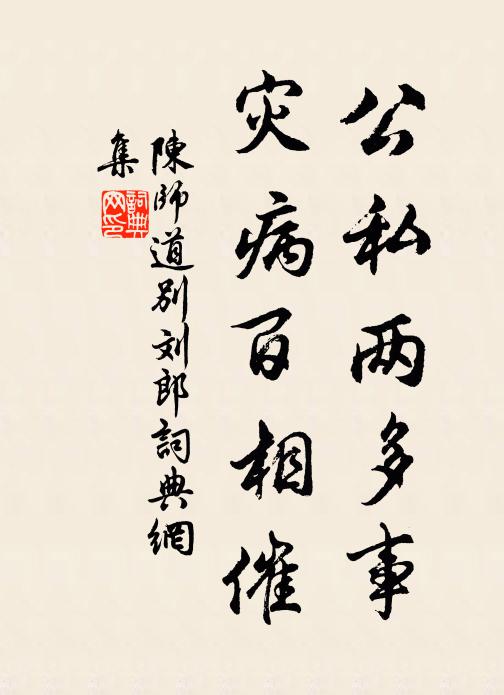 公私两多事
灾病百相催
陳師道别刘郎詞典網
集
詞典
网印